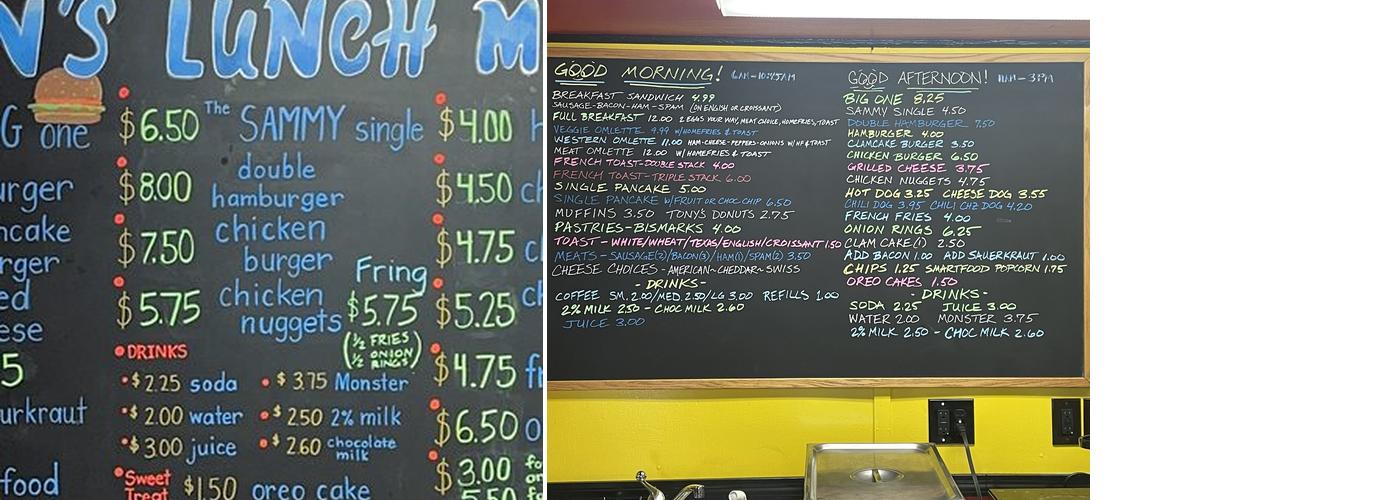 N'S LUNCH M
G one $6.50 The SAMMY single $4.00 h
urger $8.00 double hamburger $4.50 ch
ncake $7.50 chicken $4.75 cl
rger burger
Fring
ed $5.75 chicken $5.75 $5.25 ch
ese nuggets
(½ FRIES
½ ONION
RINGS)
DRINKS
5 $4.75 fr
$2.25 soda $3.75 Monster
urkraut $2.00 water $2.50 2% milk $6.50 o
$3.00 juice $2.60 chocolate milk
$3.00
food Sweet Treat $1.50 oreo cake 5.50
GOOD MORNING! 6AM-10:45AM
BREAKFAST SANDWICH 4.99
SAUSAGE-BACON-HAM-SPAM (ON ENGLISH OR CROISSANT)
FULL BREAKFAST 12.00 2 EGGS YOUR WAY, MEAT CHOICE, HOMEFRIES, TOAST
VEGGIE OMLETTE 9.99 W/HOMEFRIES & TOAST
WESTERN OMLETTE 11.00 HAM-CHEESE-PEPPERS-ONIONS W/HF & TOAST
MEAT OMLETTE 12.00 W/HOMEFRIES & TOAST
FRENCH TOAST-DOUBLE STACK 4.00
FRENCH TOAST-TRIPLE STACK 6.00
SINGLE PANCAKE 5.00
SINGLE PANCAKE W/FRUIT OR CHOC CHIP 6.50
MUFFINS 3.50 TONY'S DONUTS 2.75
PASTRIES-BISMARKS 4.00
TOAST-WHITE/WHEAT/TEXAS/ENGLISH/CROISSANT 1.50
MEATS-SAUSAGE(2)/BACON(3)/HAM(1)/SPAM(2) 3.50
CHEESE CHOICES-AMERICAN~CHEDDAR~SWISS
-DRINKS-
COFFEE SM. 2.00/MED. 2.50/LG 3.00 REFILLS 1.00
2% MILK 2.50 - CHOC MILK 2.60
JUICE 3.00
GOOD AFTERNOON! 11AM-3PM
BIG ONE 8.25
SAMMY SINGLE 4.50
DOUBLE HAMBURGER 7.50
HAMBURGER 4.00
CLAMCAKE BURGER 3.50
CHICKEN BURGER 6.50
GRILLED CHEESE 3.75
CHICKEN NUGGETS 4.75
HOT DOG 3.25 CHEESE DOG 3.55
CHILI DOG 3.95 CHILI CHZ DOG 4.20
FRENCH FRIES 4.00
ONION RINGS 6.25
CLAM CAKE (1) 2.50
ADD BACON 1.00 ADD SAUERKRAUT 1.00
CHIPS 1.25 SMARTFOOD POPCORN 1.75
OREO CAKES 1.50
-DRINKS-
SODA 2.25 JUICE 3.00
WATER 2.00 MONSTER 3.75
2% MILK 2.50 - CHOC MILK 2.60